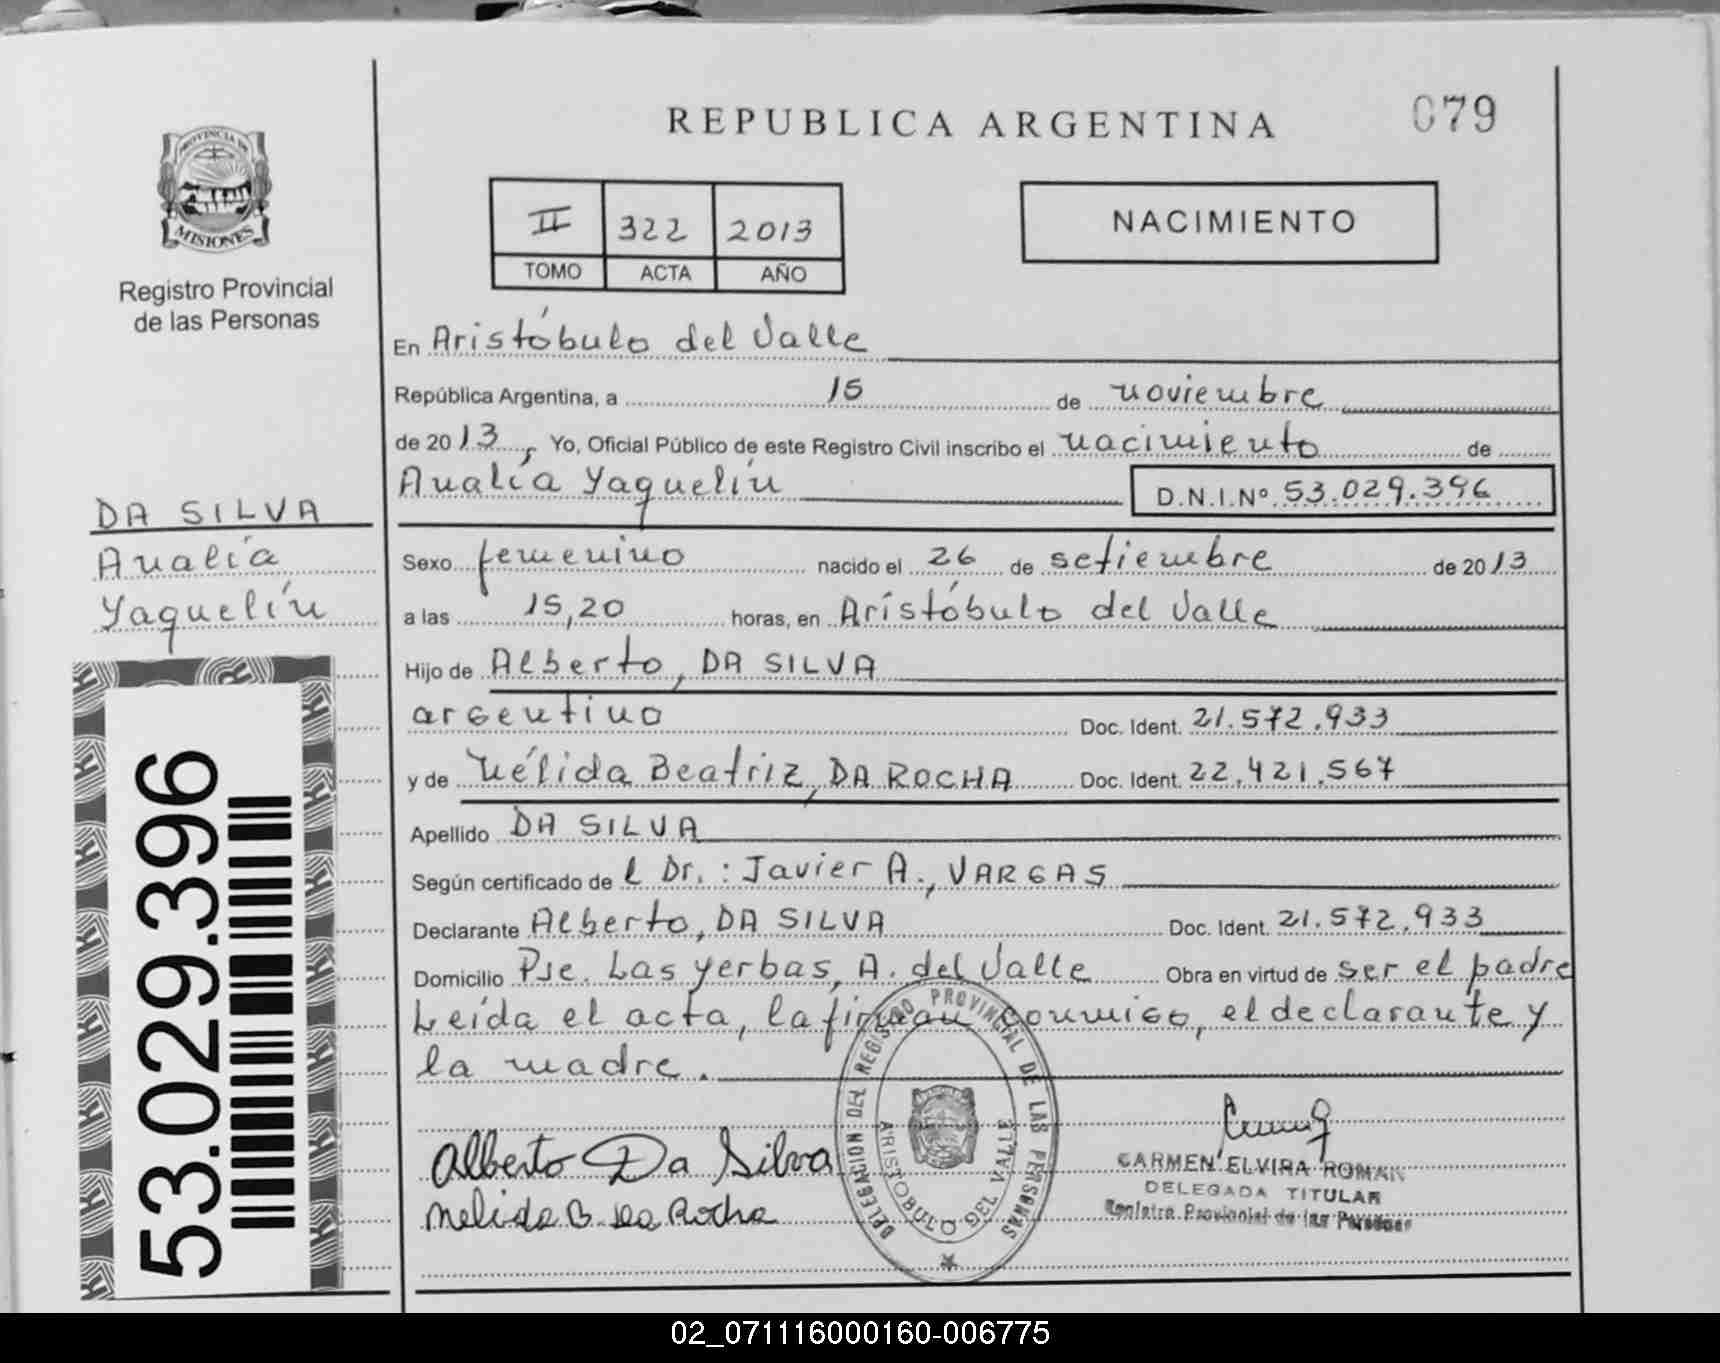 REPUBLICA ARGENTINA
079
PROVINCIA DE
MISIONES
Registro Provincial
de las Personas
II 322 2013
TOMO ACTA AÑO
NACIMIENTO
En Aristóbulo del Valle
República Argentina, a 15 de noviembre
de 20 13, Yo, Oficial Público de este Registro Civil inscribo el nacimiento de
Analía Yaquelín D.N.I.Nº 53.029.396
DA SILVA
Analía
Yaquelín
Sexo femenino nacido el 26 de setiembre de 20 13
a las 15,20 horas, en Aristóbulo del Valle
Hijo de Alberto, DA SILVA
argentino Doc. Ident. 21.572.933
y de Nélida Beatriz, DA ROCHA Doc. Ident. 22.421.567
Apellido DA SILVA
Según certificado de l Dr.: Javier A., VARGAS
Declarante Alberto, DA SILVA Doc. Ident. 21.572.933
Domicilio Pje. Las Yerbas, A. del Valle Obra en virtud de ser el padre
Leída el acta, la firman conmigo, el declarante y
la madre.
53.029.396
Alberto Da Silva
Nelida B. Da Rocha
DELEGACION DEL REGISTRO PROVINCIAL DE LAS PERSONAS
ARISTOBULO DEL VALLE
CARMEN ELVIRA ROMAN
DELEGADA TITULAR
Registro Provincial de las Personas
02_071116000160-006775